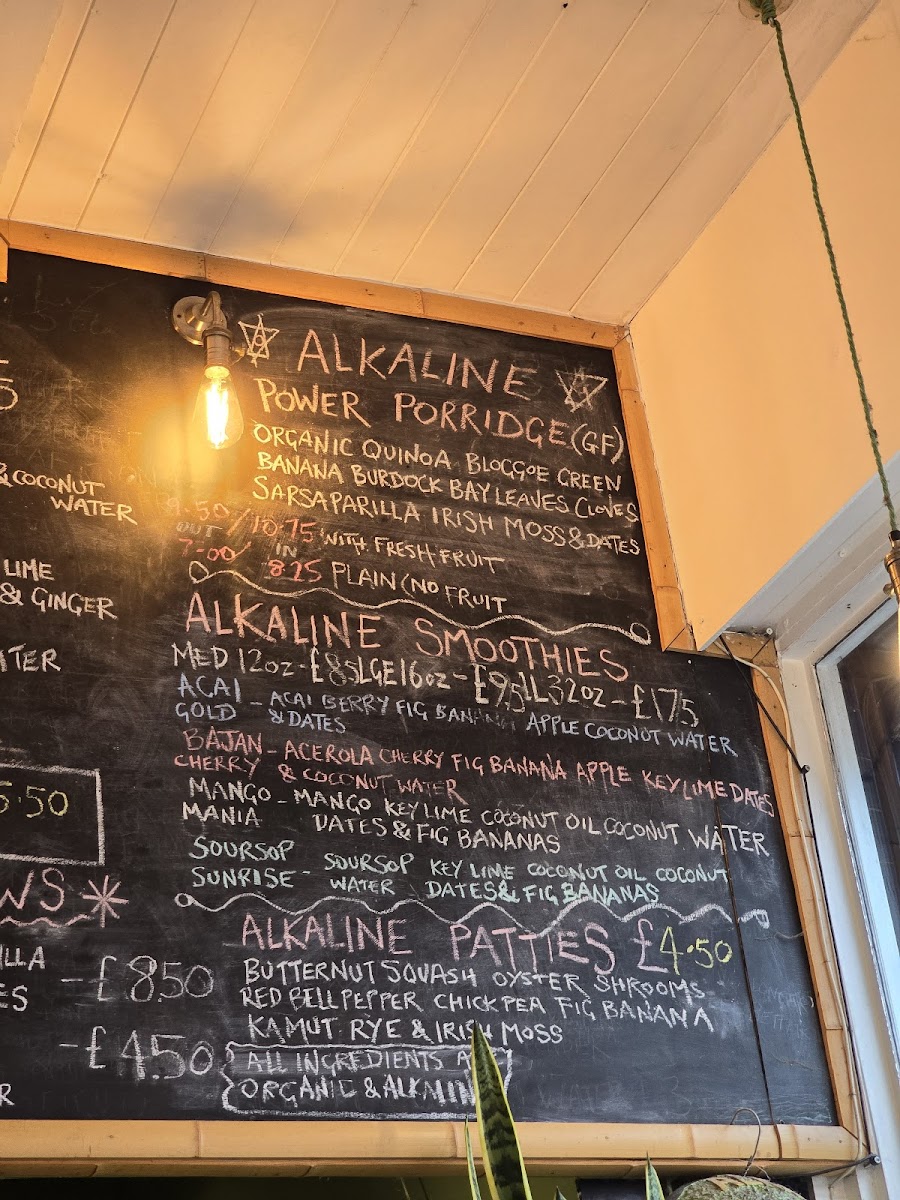 5
& COCONUT
WATER
LIME
& GINGER
TER
5.50
WS
LLA
ES
-£8.50
-£4.50
R
ALKALINE
POWER PORRIDGE (GF)
ORGANIC QUINOA BLOGGOE GREEN
BANANA BURDOCK BAY LEAVES CLOVES
SARSAPARILLA IRISH MOSS & DATES
9.50/10.75 WITH FRESH FRUIT
OUT IN
7.00/8.25 PLAIN (NO FRUIT
ALKALINE SMOOTHIES
MED 12oz - £8.5 LGE 16oz - £9.5 1L 32oz - £17.5
ACAI - ACAI BERRY FIG BANANA APPLE COCONUT WATER
GOLD & DATES
BAJAN - ACEROLA CHERRY FIG BANANA APPLE KEY LIME DATES
CHERRY & COCONUT WATER
MANGO - MANGO KEY LIME COCONUT OIL COCONUT WATER
MANIA DATES & FIG BANANAS
SOURSOP SOURSOP KEY LIME COCONUT OIL COCONUT
SUNRISE - WATER DATES & FIG BANANAS
ALKALINE PATTIES £4.50
BUTTERNUT SQUASH OYSTER SHROOMS
RED BELL PEPPER CHICKPEA FIG BANANA
KAMUT RYE & IRISH MOSS
ALL INGREDIENTS A
ORGANIC & ALKALIN